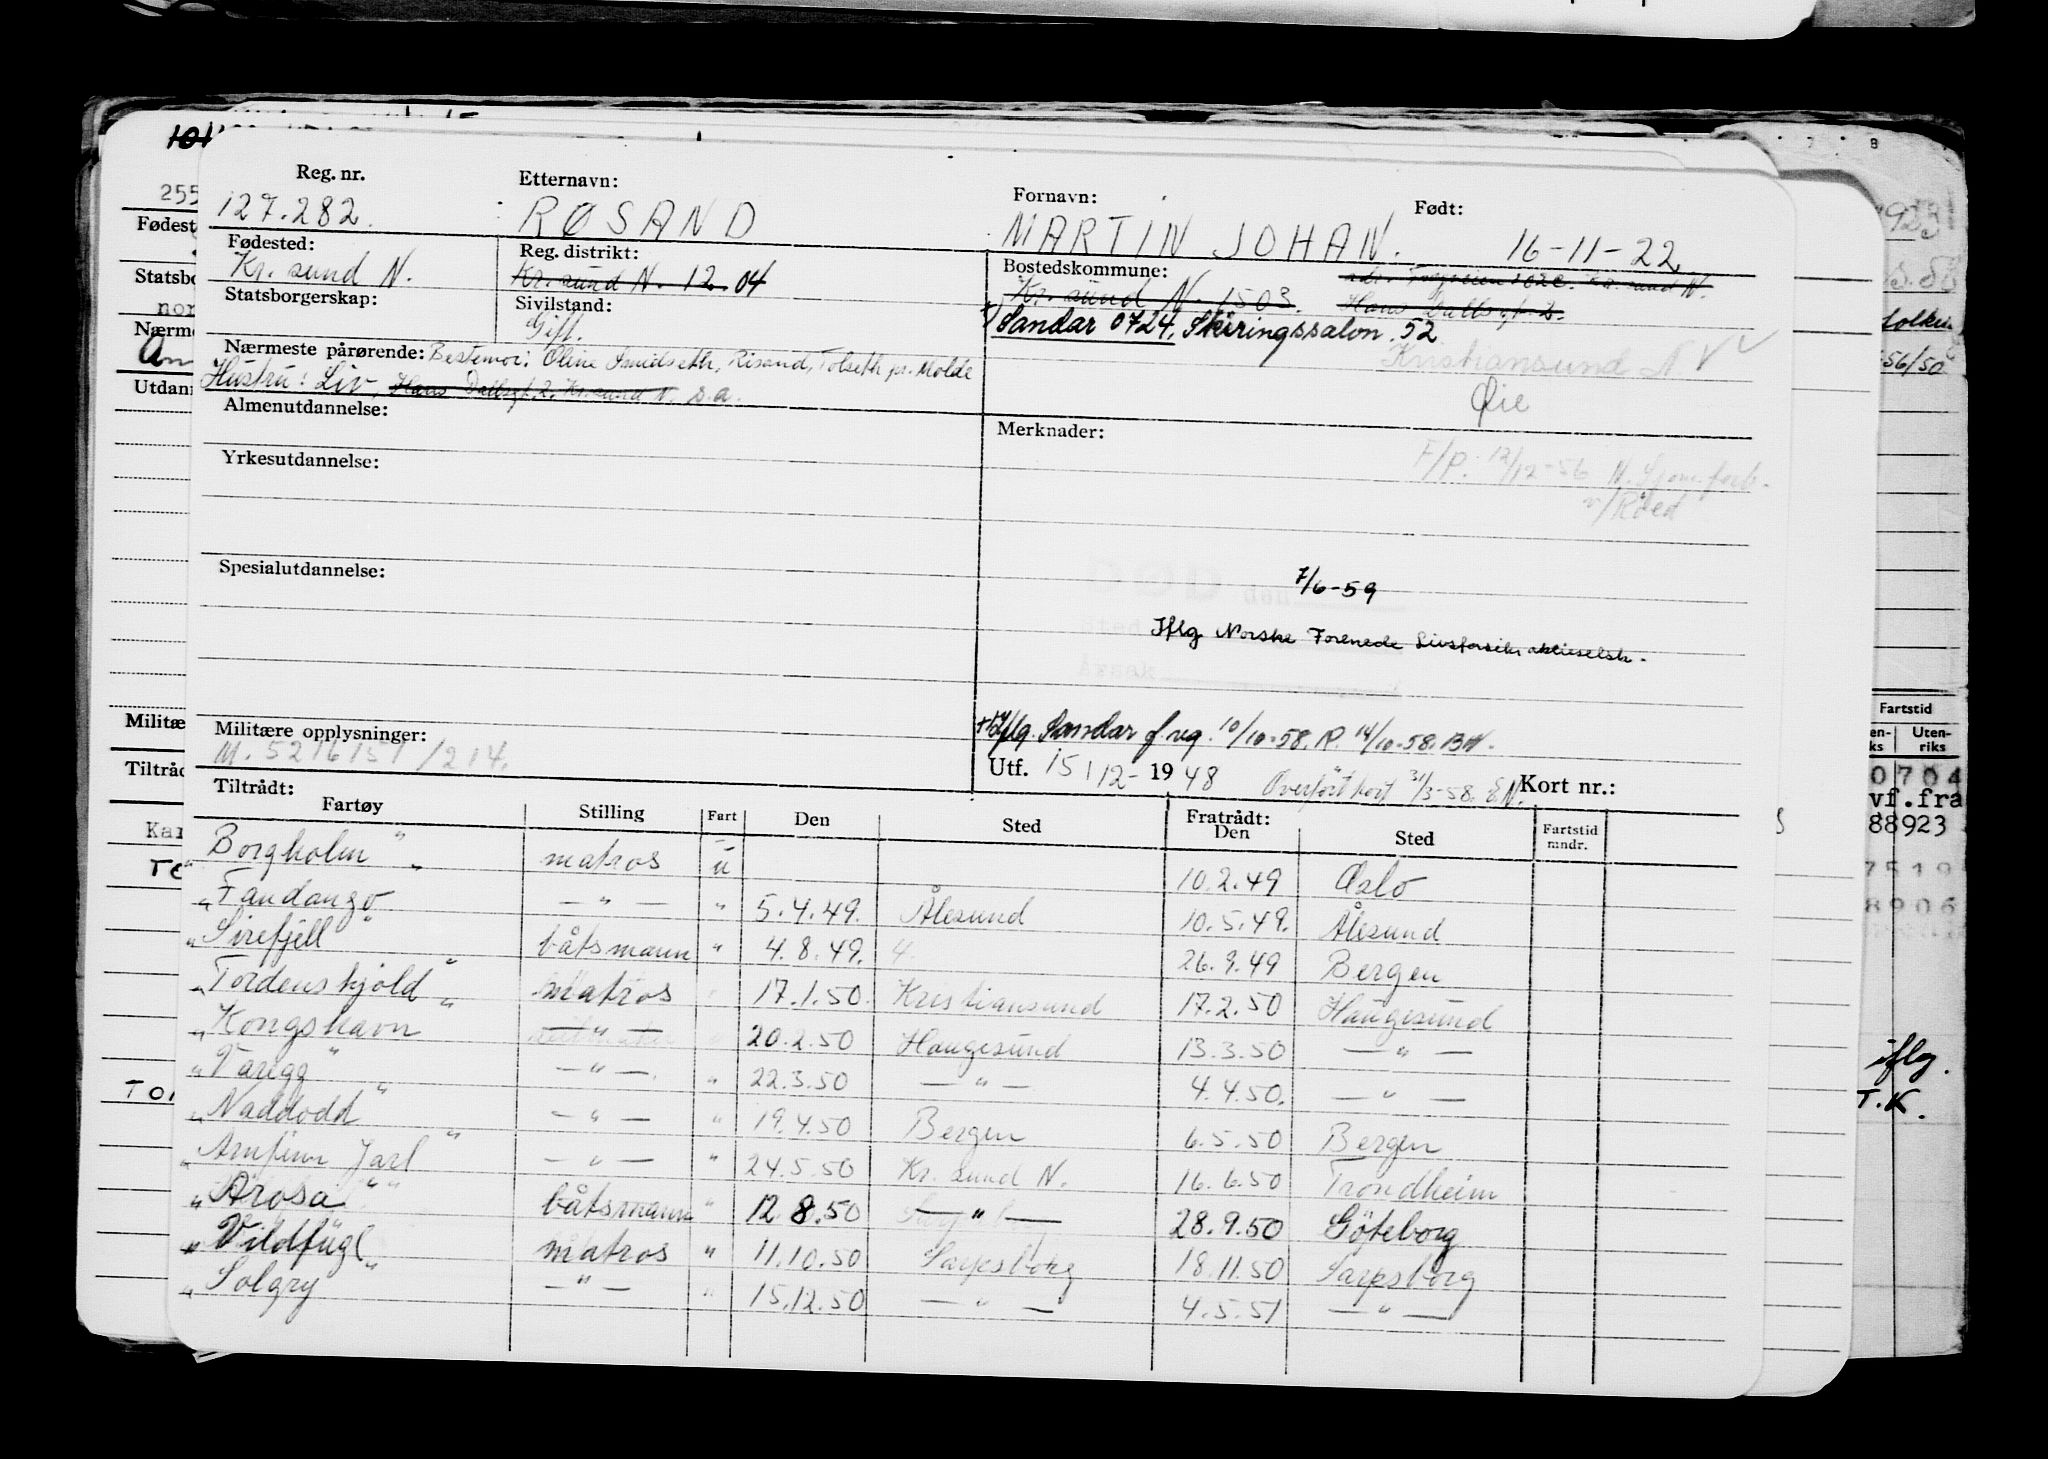 Reg. nr. Etternavn: Fornavn: Født:
127.282. RØSAND MARTIN JOHAN. 16-11-22
Fødested: Reg. distrikt: Bostedskommune:
Kr. sund N. Kr. sund N. 12. 04 Kr. sund N. 1503.
Hans Dallsgt. 2.
Statsborgerskap: Sivilstand: Sandar 0724, Skiringssalon. 52
Gift.
Kristiansund N.
Nærmeste pårørende: Bestemor: Oline Smidseth, Risand, Tolseth pr. Molde
Hustru: Liv, Hans Dallsgt. 2. Kr. sund N. s.a.
Øie
Almenutdannelse: Merknader:
F/P. 12/12-56 N. Sjøm.forb.
v/Röed
Yrkesutdannelse:
Spesialutdannelse:
DØD den
Sted
Årsak
7/6-59
Iflg Norske Forenede Livsforsikr aktieselsk.
Militære opplysninger: iflg. Sandar f.reg. 10/10-58. P. 14/10-58. BH.
M. 5216151/214.
Utf. 15/12- 1948 Overført kort 31/3-58. EN. Kort nr.:
Tiltrådt: Fratrådt:
Fartøy Stilling Fart Den Sted Den Sted Fartstid mndr.
"Borgholm" matros u 10.2.49 Oslo
"Fandango" — " — " 5.4.49. Ålesund 10.5.49. Ålesund
"Sirefjell" båtsmann " 4.8.49. 4. 26.9.49 Bergen
"Tordenskjold" matros " 17.1.50. Kristiansund 17.2.50 Haugesund
"Kongshavn" — " — " 20.2.50 Haugesund 13.3.50 — " —
"Varegg" — " —. " 22.3.50 — " —. 4.4.50. — " —
"Naddodd" — " — " 19.4.50 Bergen 6.5.50 Bergen
"Arnfinn Jarl" — " — " 24.5.50 Kr. sund N. 16.6.50 Trondheim
"Arosa" båtsmann " 12.8.50 — " — 28.9.50 Göteborg
"Vildfugl" matros " 11.10.50 Sarpsborg 18.11.50 Sarpsborg
"Solgry" — " — " 15.12.50 — " — 4.5.51 — " —
255
Fødest
Statsbo
nor
Nærme
Utdann
Militæ
Tiltråd
Kar
TO
8
923
56/50
Fartstid
Uten-
riks
0704
vf.fra
88923
7519
8906
iflg.
T.K.